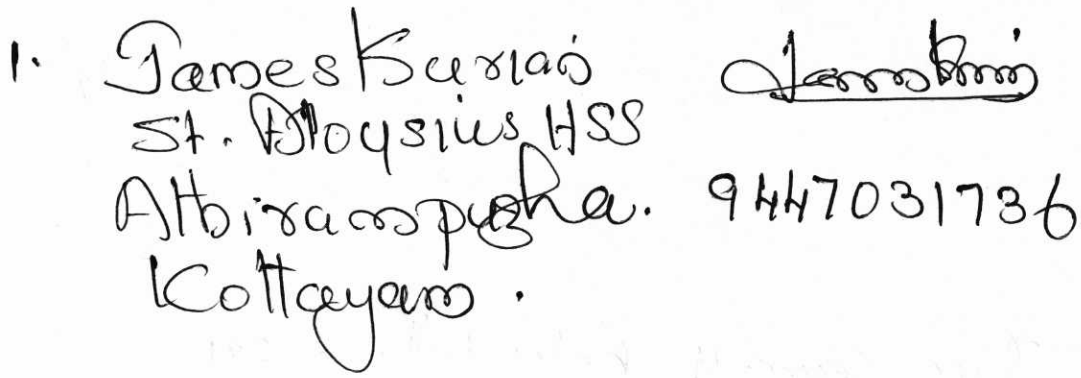 1. James Kurian
St. Aloysius HSS
Athirampuzha. 9447031736
Kottayam.